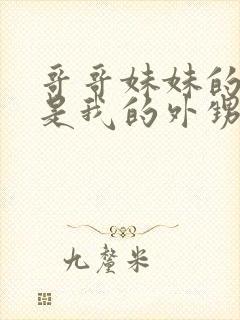 哥哥妹妹的
是我的外甥
九釐米